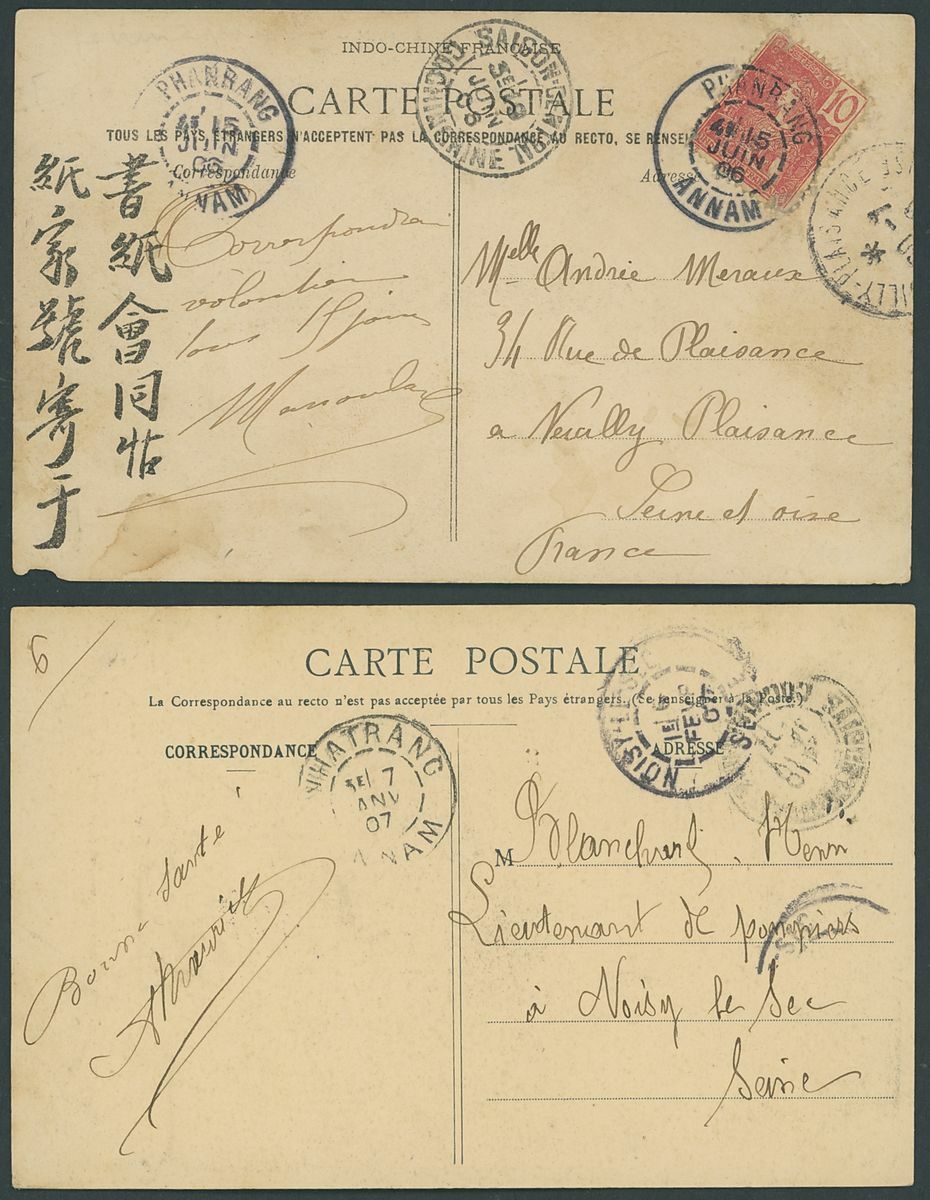 INDO-CHINE FRANÇAISE
CARTE POSTALE
TOUS LES PAYS ÉTRANGERS N'ACCEPTENT PAS LA CORRESPONDANCE AU RECTO, SE RENSEI
Correspondance
Adresse
PHANRANG
15
JUIN
06
ANNAM
SAIGON-CENTRAL
COCHINCHINE
JUIN
06
PHANRANG
15
JUIN
06
ANNAM
10
書紙會同帖
紙家號寄于
Correspondrai
volontiers
tous
Melle Andrée Meraux
34 Rue de Plaisance
a Neuilly Plaisance
Seine et oise
France
6
CARTE POSTALE
La Correspondance au recto n'est pas acceptée par tous les Pays étrangers. (Se renseigner à la Poste.)
CORRESPONDANCE
ADRESSE
NHATRANG
7
JANV
07
ANNAM
NOISY-LE-SEC
FEVR
07
SEINE
Bonne Santé
M Blanchard, Henri
Lieutenant de pompiers
à Noisy le Sec
Seine